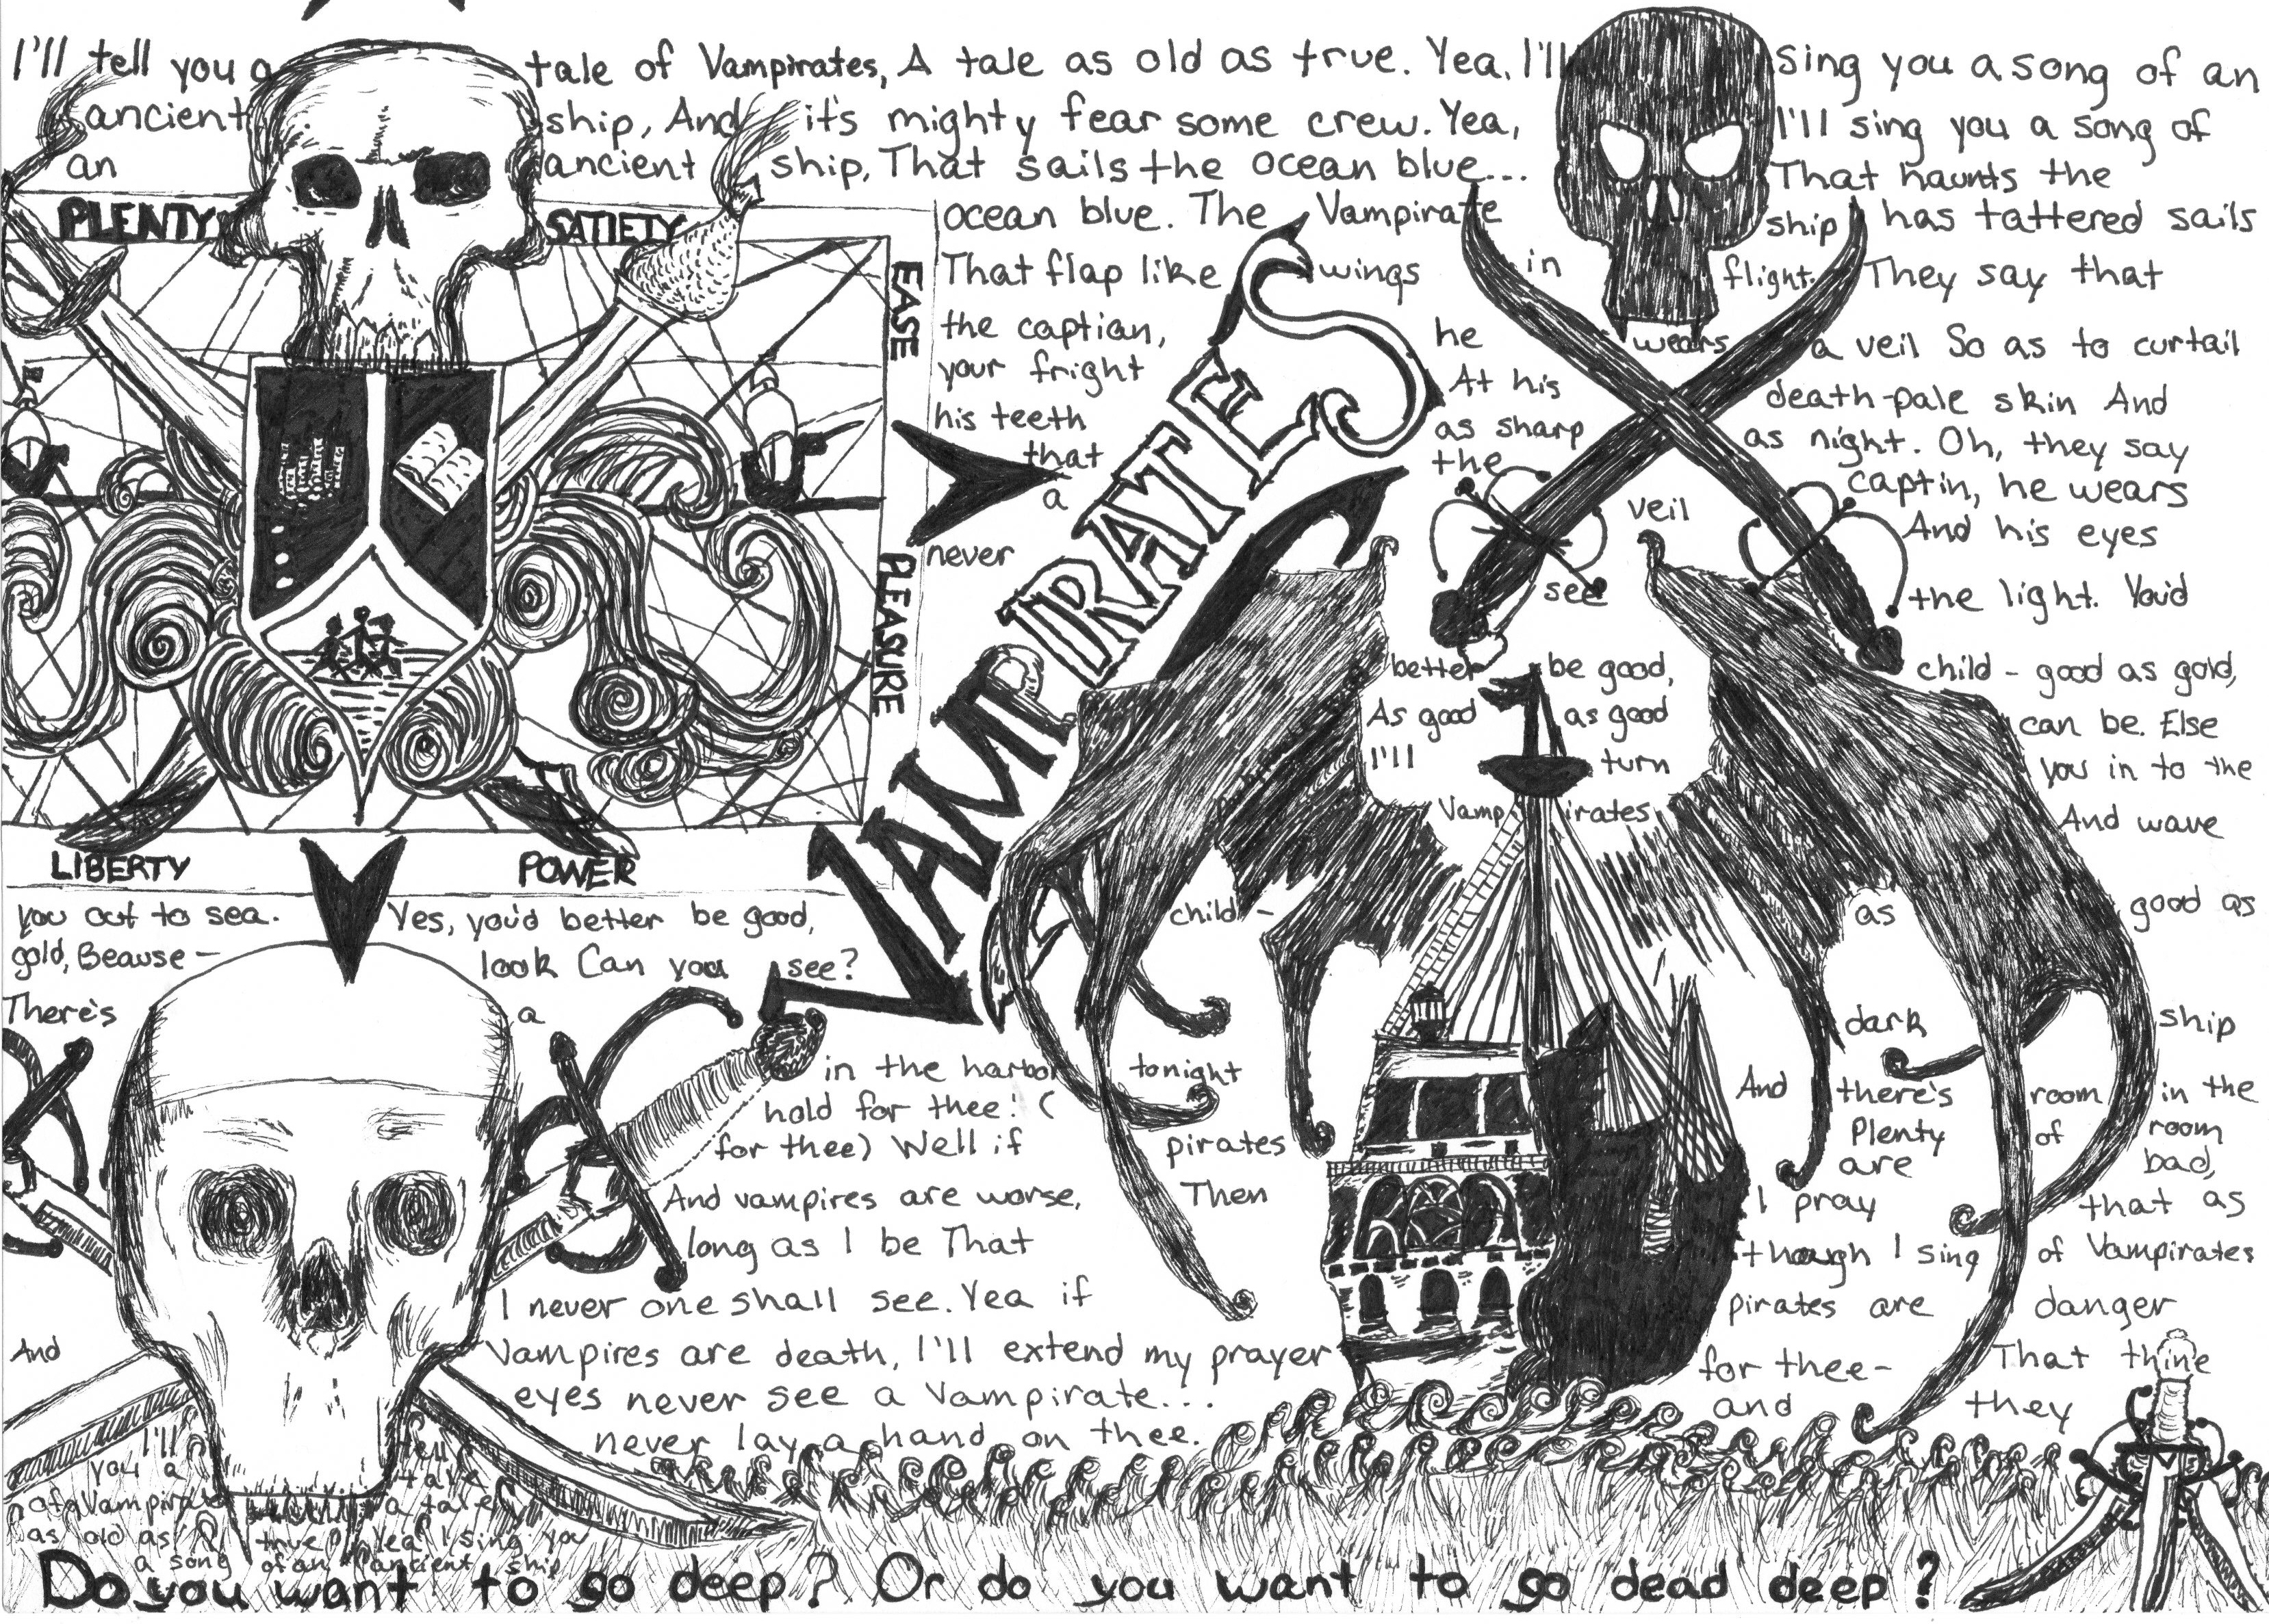 I'll tell you a tale of Vampirates, A tale as old as true. Yea, I'll sing you a song of an
ancient ship, And it's mighty fear some crew. Yea, I'll sing you a song of
an ancient ship, That sails the ocean blue... That haunts the
ocean blue. The Vampirate ship has tattered sails
That flap like wings in flight. They say that
the captian, he wears a veil So as to curtail
your fright At his death-pale skin And
his teeth as sharp as night. Oh, they say
that the captin, he wears
a veil And his eyes
never see the light. You'd
better be good, child - good as gold,
As good as good can be. Else
I'll turn you in to the
Vampirates And wave
you out to sea. Yes, you'd better be good, child - as good as
gold, Beause - look Can you see?
There's a dark ship
in the harbor tonight And there's room in the
hold for thee! ( Plenty of room
for thee) Well if pirates are bad,
And vampires are worse, Then I pray that as
long as I be That though I sing of Vampirates
I never one shall see. Yea if pirates are danger
And Vampires are death, I'll extend my prayer for thee - That thine
eyes never see a Vampirate... and they
never lay a hand on thee.
PLENTY SATIETY
EASE
PLEASURE
LIBERTY POWER
VAMPIRATES
I'll tell
you a tale
of Vampirates a tale
as old as true Yea I sing you
a song of an ancient ship
Do you want to go deep? Or do you want to go dead deep?